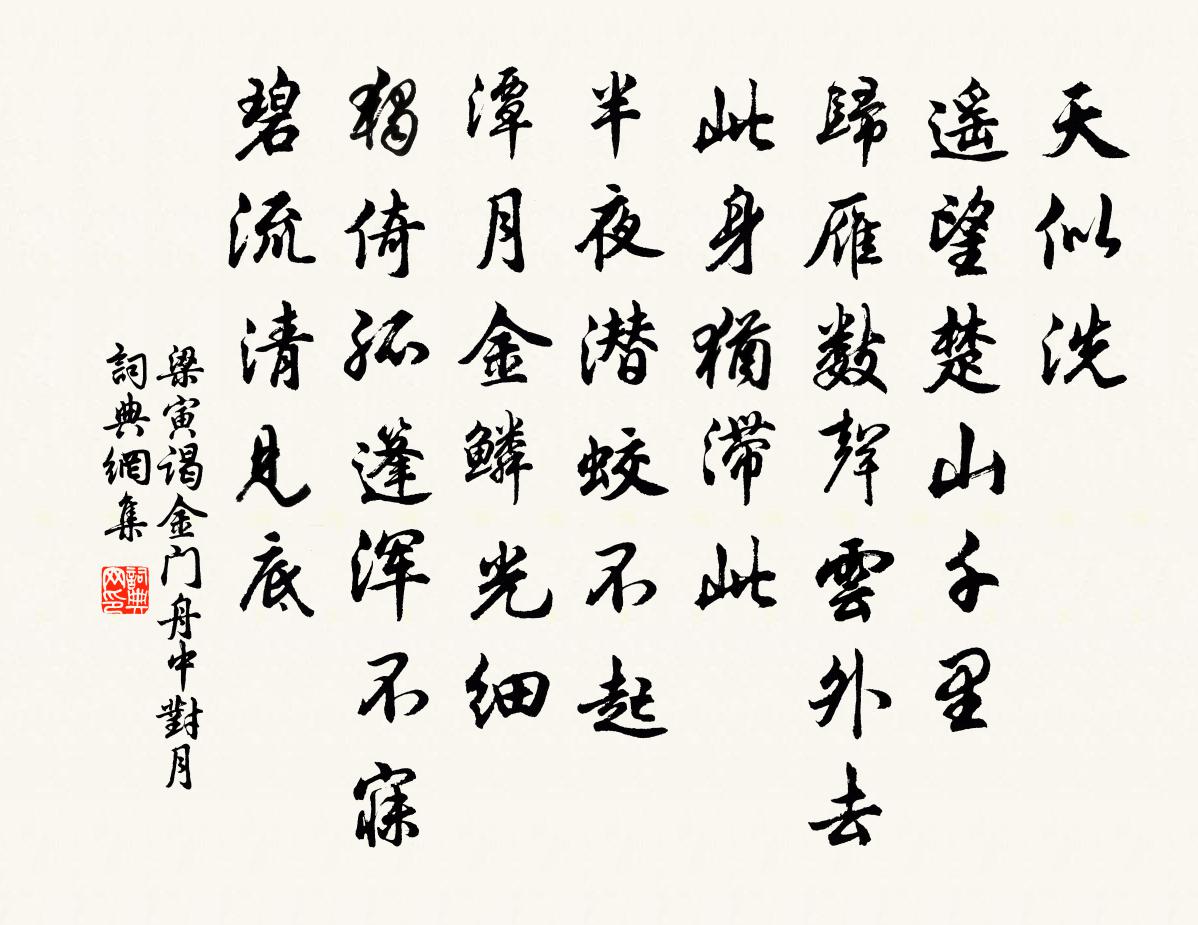 天似洗
遥望楚山千里
歸雁数聲雲外去
此身猶滞此
半夜潜蛟不起
潭月金鳞光细
獨倚孤蓬浑不寐
碧流清見底
梁寅谒金门舟中對月
詞典網集
詞典